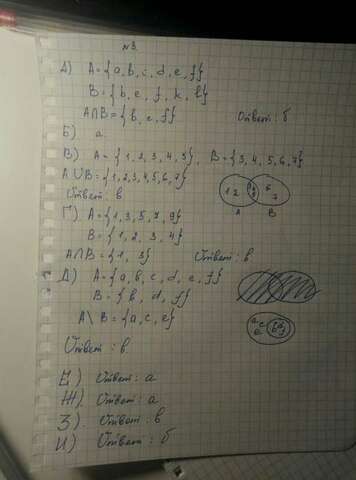 №3.
А) A = {a, b, c, d, e, f}
B = {b, e, f, k, l}
A∩B = {b, e, f} Ответ: б
Б) а
В) A = {1, 2, 3, 4, 5}, B = {3, 4, 5, 6, 7}
A∪B = {1, 2, 3, 4, 5, 6, 7}
1 2 3 4 5 6 7
Ответ: в
A B
Г) A = {1, 3, 5, 7, 9}
B = {1, 2, 3, 4}
A∩B = {1, 3} Ответ: в
Д) A = {a, b, c, d, e, f}
B = {b, d, f}
A \ B = {a, c, e}
a c e b d f
Ответ: в
Е) Ответ: а
Ж). Ответ: а
З). Ответ: в
И) Ответ: б